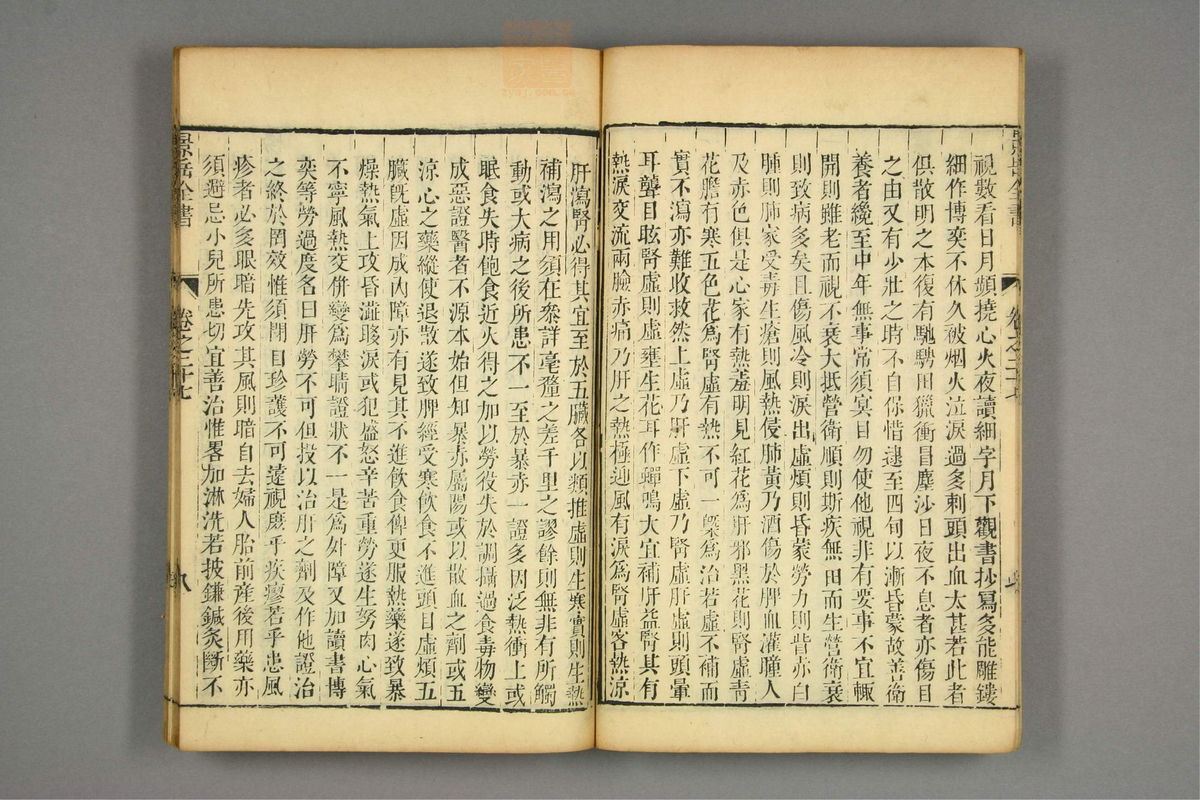 視數看日月頻撓心火夜讀細字月下觀書抄寫多能雕鏤
細作博奕不休久被烟火泣淚過多刺頭出血太甚若此者
俱散明之本復有馳騁田獵衝冒塵沙日夜不息者亦傷目
之由又有少壯之時不自保惜逮至四旬以漸昏蒙故善衛
養者纔至中年無事常須冥目勿使他視非有要事不宜輒
開則雖老而視不衰大抵營衛順則斯疾無由而生營衛衰
則致病多矣且傷風冷則淚出虛煩則昏蒙勞力則眥赤白
腫則肺家受毒生瘡則風熱侵肺黃乃酒傷於脾血灌瞳人
及赤色俱是心家有熱羞明見紅花爲肝邪黑花則腎虛青
花膽有寒五色花爲腎虛有熱不可一槩爲治若虛不補而
實不瀉亦難收救然上虛乃肝虛下虛乃腎虛肝虛則頭暈
耳聾目眩腎虛則虛壅生花耳作蟬鳴大宜補肝益腎其有
熱淚交流兩臉赤痛乃肝之熱極迎風有淚爲腎虛客熱涼
肝瀉腎必得其宜至於五臟各以類推虛則生寒實則生熱
補瀉之用須在參詳毫釐之差千里之謬餘則無非有所觸
動或大病之後所患不一至於暴赤一證多因泛熱衝上或
眠食失時飽食近火得之加以勞役失於調攝過食毒物變
成惡證醫者不源本始但知暴赤屬陽或以散血之劑或以
涼心之藥縱使退散遂致脾經受寒飲食不進頭目虛煩五
臟既虛因成內障亦有見其不進飲食俾更服熱藥遂致暴
燥熱氣上攻昏澁眵淚或犯盛怒辛苦重勞遂生努肉心氣
不寧風熱交併變爲攀睛證狀不一是爲外障又加讀書博
奕等勞過度名曰肝勞不可但投以治肝之劑及作他證治
之終於罔效惟須閉目珍護不可遠視庶乎疾瘳若乎患風
疹者必多眼暗先攻其風則暗自去婦人胎前產後用藥亦
須避忌小兒所患切宜善治惟畧加淋洗若披鎌鍼灸斷不
景岳全書
卷之二十七
八